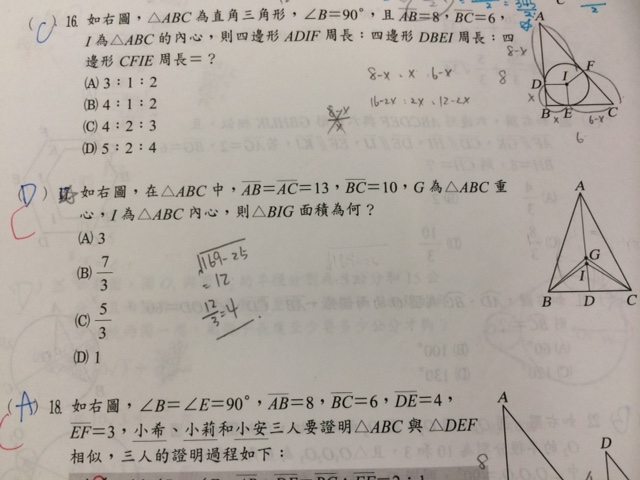 (C) 16. 如右圖，△ABC 為直角三角形，∠B=90°，且 AB=8，BC=6，
I 為△ABC 的內心，則四邊形 ADIF 周長：四邊形 DBEI 周長：四
邊形 CFIE 周長=？
(A) 3：1：2
(B) 4：1：2
(C) 4：2：3
(D) 5：2：4
8-x . x . 6-x
16-2x : 2x : 12-2x
A
8-x
8
D
F
I
x
B
E
C
x
6-x
6
(D) 如右圖，在△ABC 中，AB=AC=13，BC=10，G 為△ABC 重
C
心，I 為△ABC 內心，則△BIG 面積為何？
(A) 3
(B) 7/3
(C) 5/3
(D) 1
√169-25
=12
12/3=4
A
G
I
B
D
C
(A) 18. 如右圖，∠B=∠E=90°，AB=8，BC=6，DE=4，
EF=3，小希、小莉和小安三人要證明△ABC 與△DEF
相似，三人的證明過程如下：
A
8
D